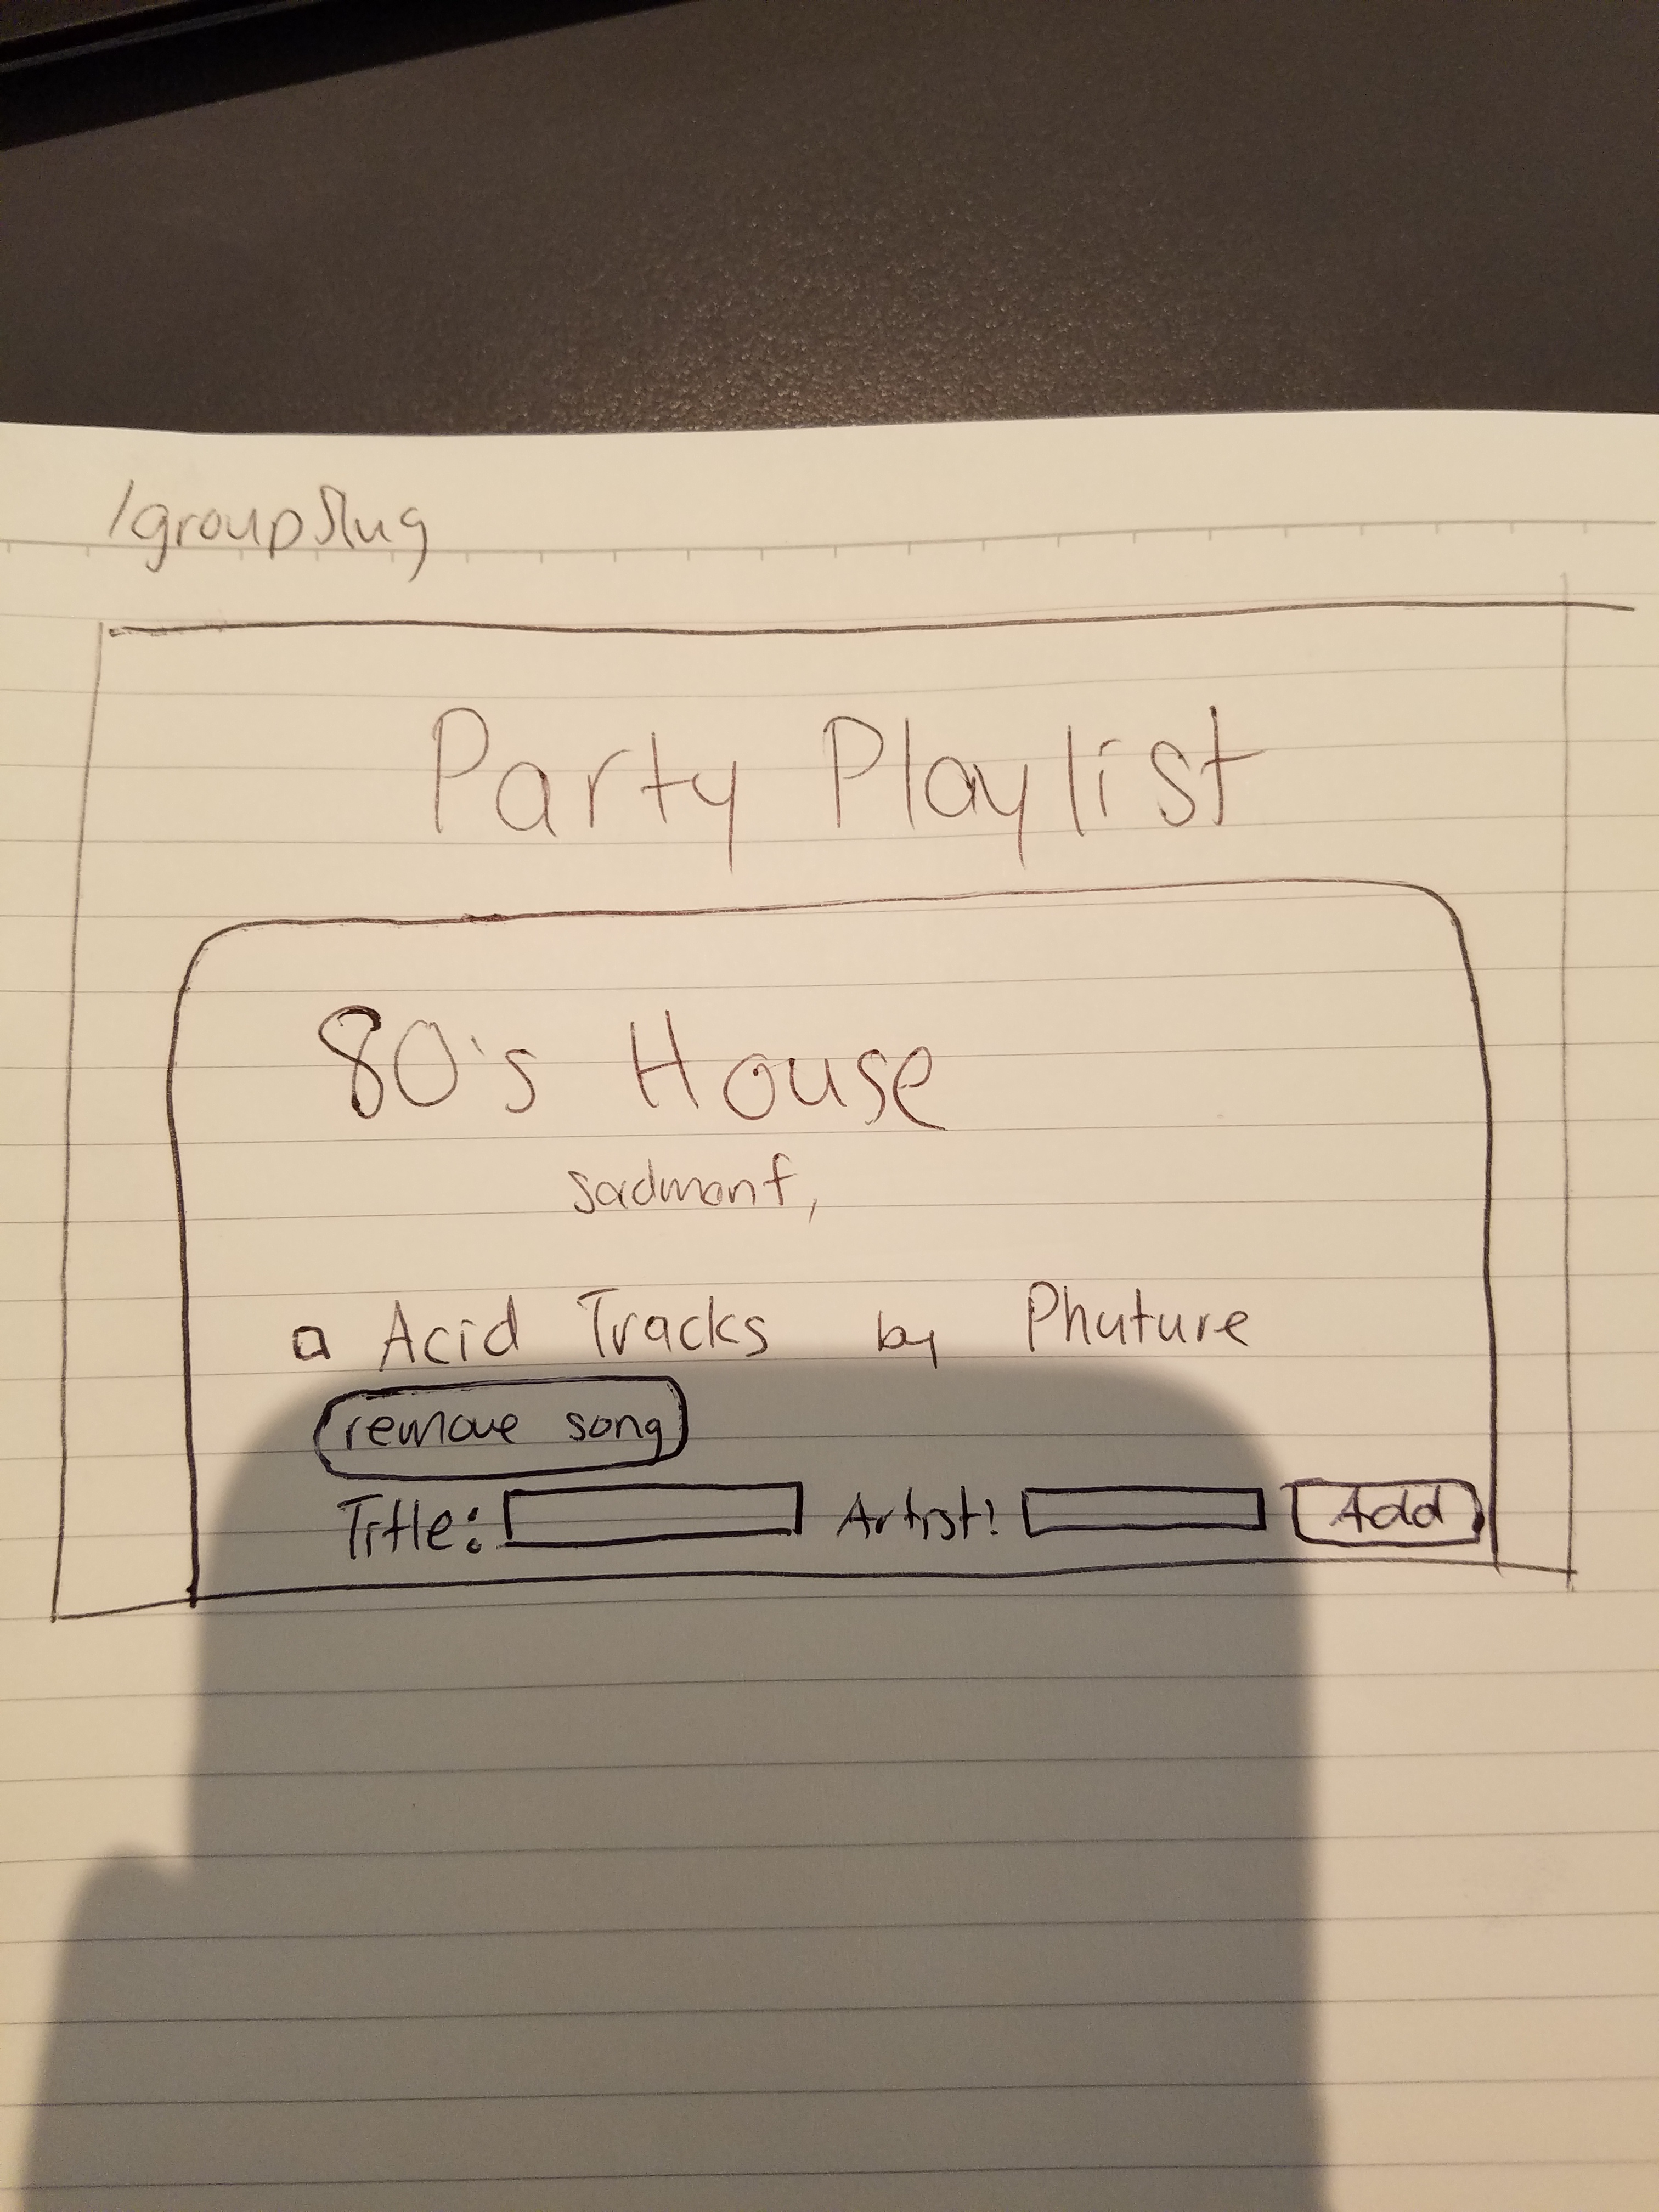 /groupSlug
Party Playlist
80's House
sadmanf,
Acid Tracks by Phuture
remove song
Title: Artist: Add